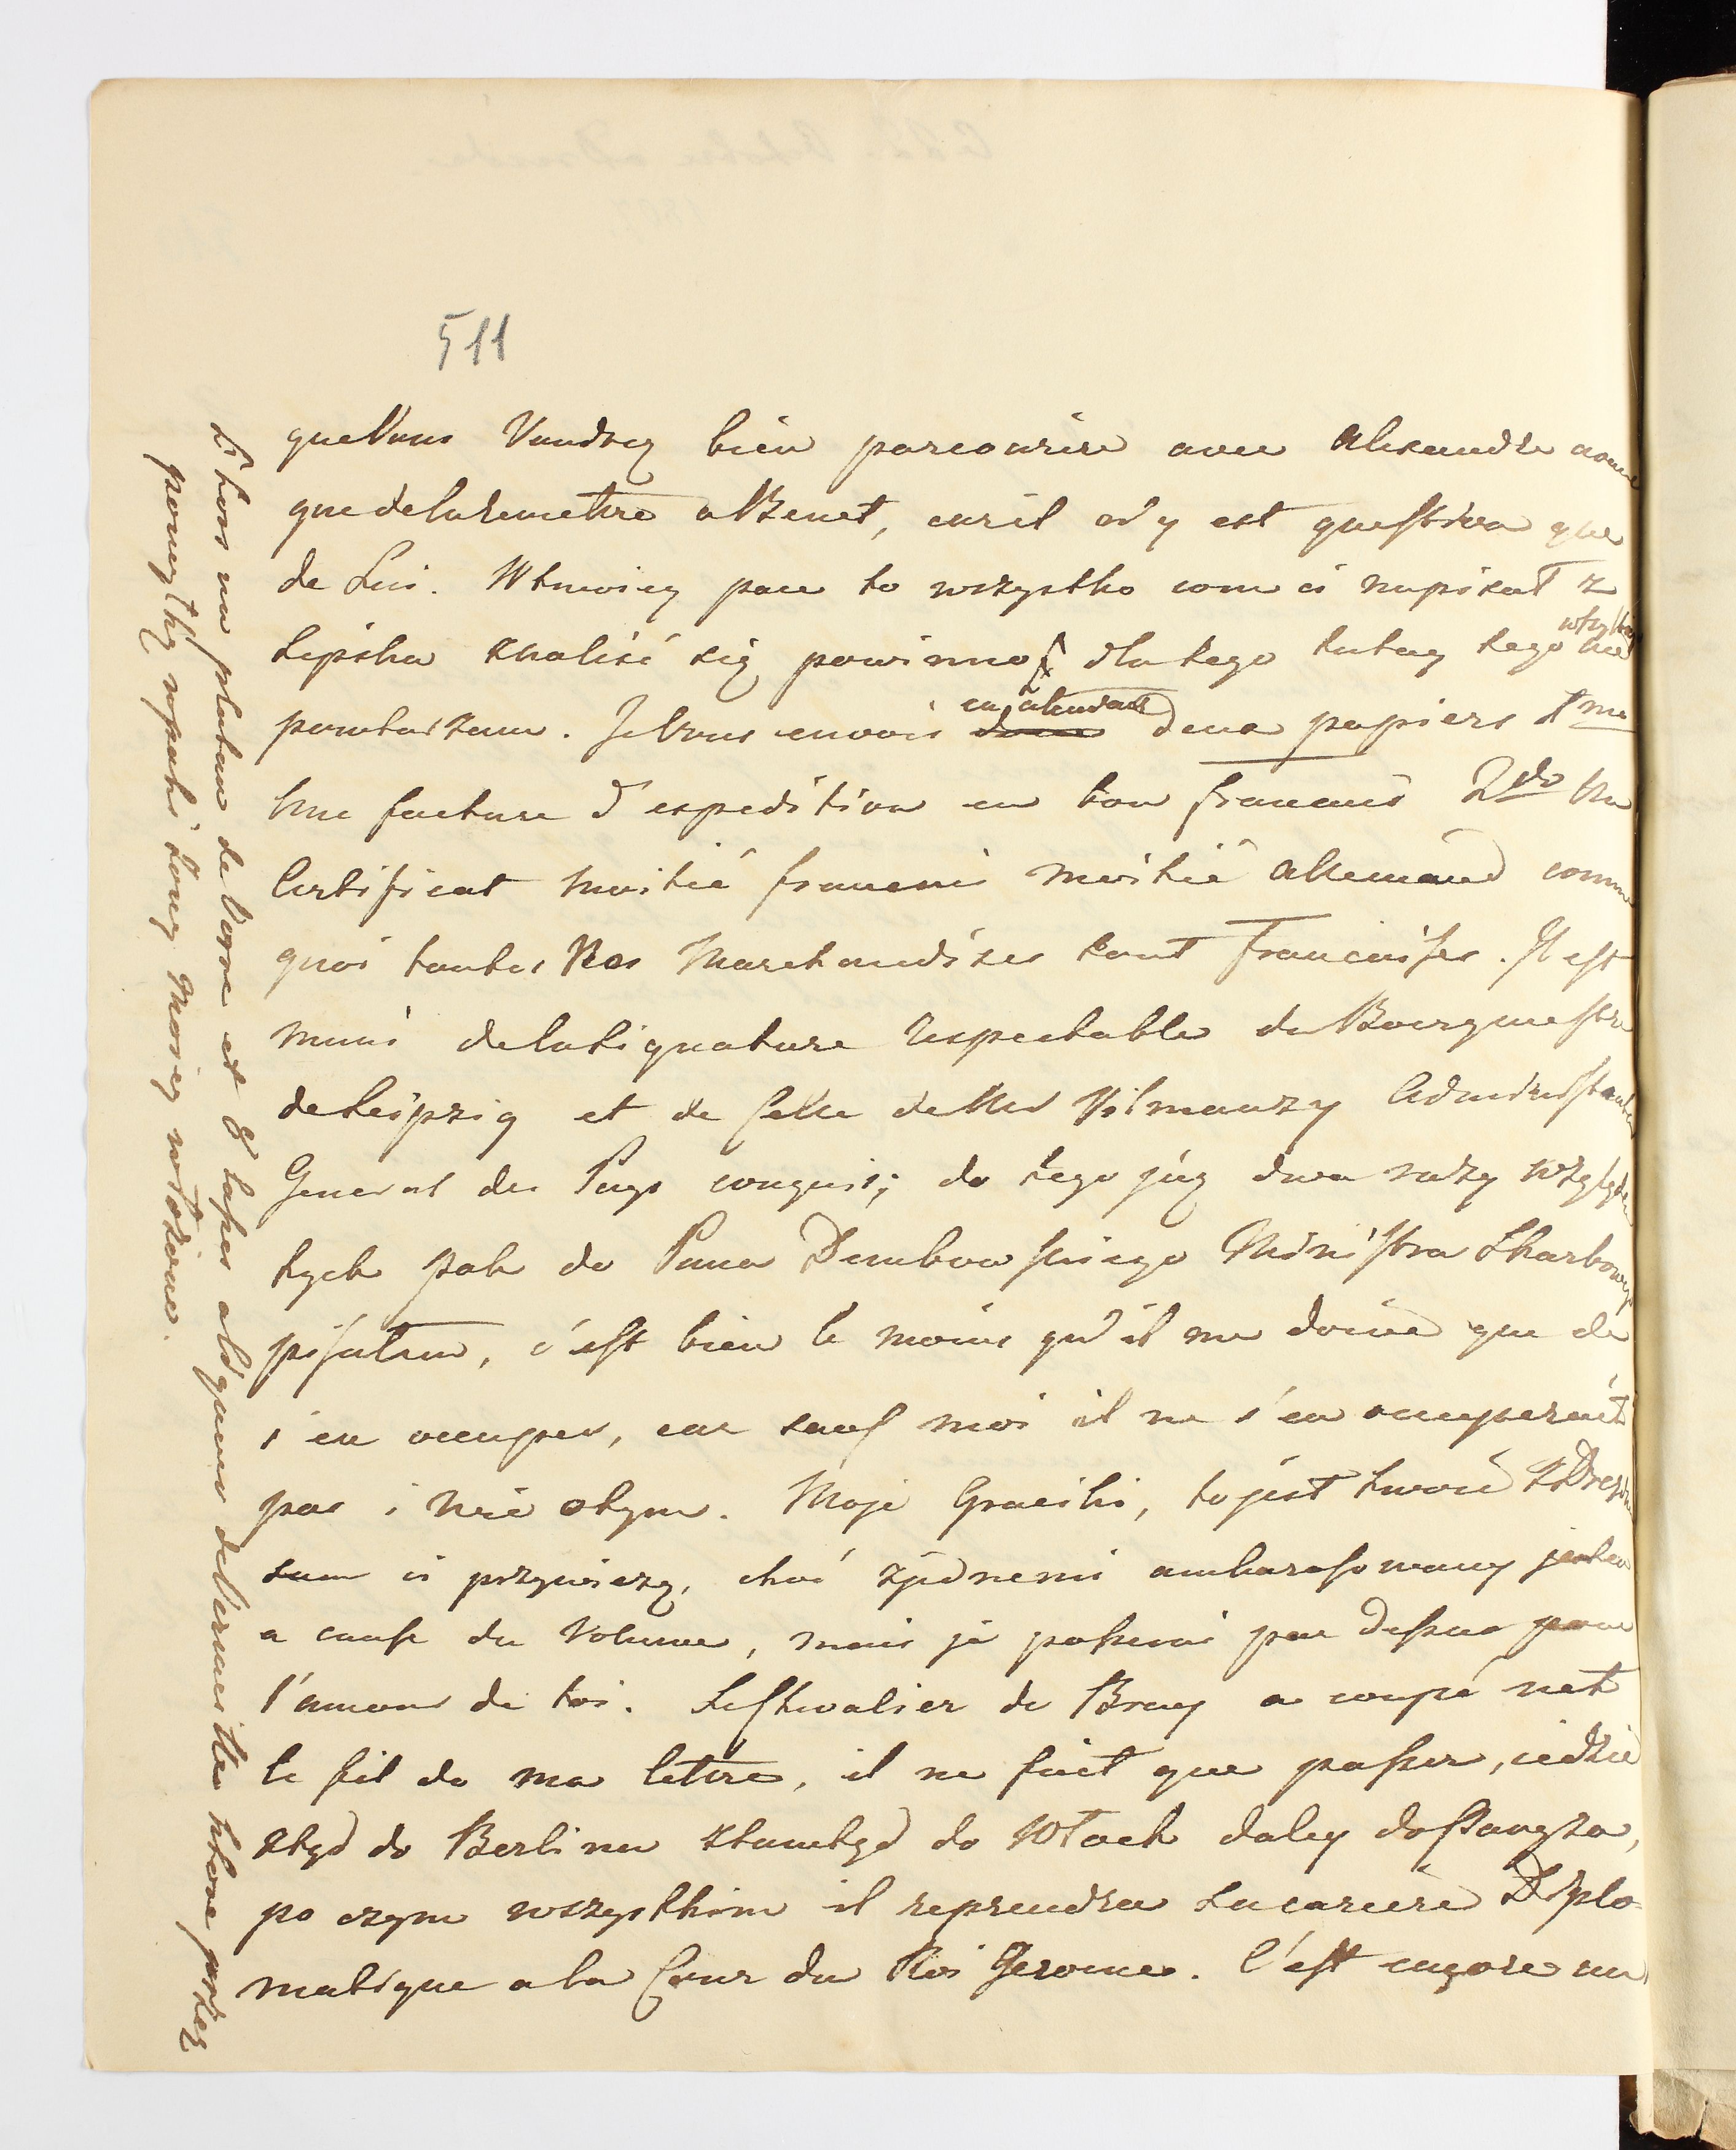 511
que Vous Voudrez bien parcourire avec Alexandre avant
que de la remettre a Benet, car il n'y est question que
de Lui. W tamiey pace to wszystko com ci napisał z
Lipska znaliść się powinno, dla tego tutay tego wszystkiego nie
powtarzam. Je Vous envois en atendant deux papiers 1mo
Une facture d'expedition en bon francais 2do Un
Certificat moitié francais moitié allemand comme
quoi toutes Nos Marchandises sont Francaises. Il est
muni de la signature respectable du Bourguemestre
de Leipzig et de celle de Mr Vilmanzy Administrateur
General des Pays conquis; do tego już dwa razy względem
tych pak do Pana Dembowskiego Ministra Skarbowego
pisałem, c'est bien le moins qu'il me doive que de
s'en occuper, car sauf moi il ne s'en occuperait
pas i nie o tym. Moje Graciki, to jest twoie z Drezna
sam ci przywiezę, choć z jednemi ambarasowany jestem
a cause du Volume, mais je passerai par dessus pour
l'amour de toi. Le Chevalier de Bray a coupé net
le fil de ma lettre, il ne fait que passer, iedzie
ztąd do Berlina ztamtąd do Włoch daley do Paryża,
po czym wszystkim il reprendra sa cariere Diplo-
matique a la Cour du Roi Jerome. C'est encore un
Skor na platau de Verre et 8 tapes ald quene de Vermeille które przez
pomyłkę w paki żony moiey włożone.